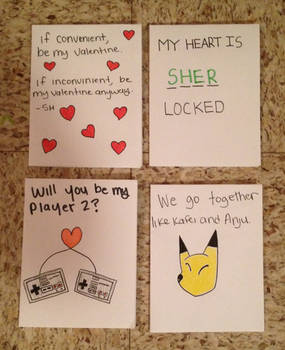 if convenient,
be my valentine.
If inconvinient, be
my valentine anyway.
-SH
MY HEART IS
SHER
LOCKED
Will you be my
player 2?
We go together
like Kafei and Anju.